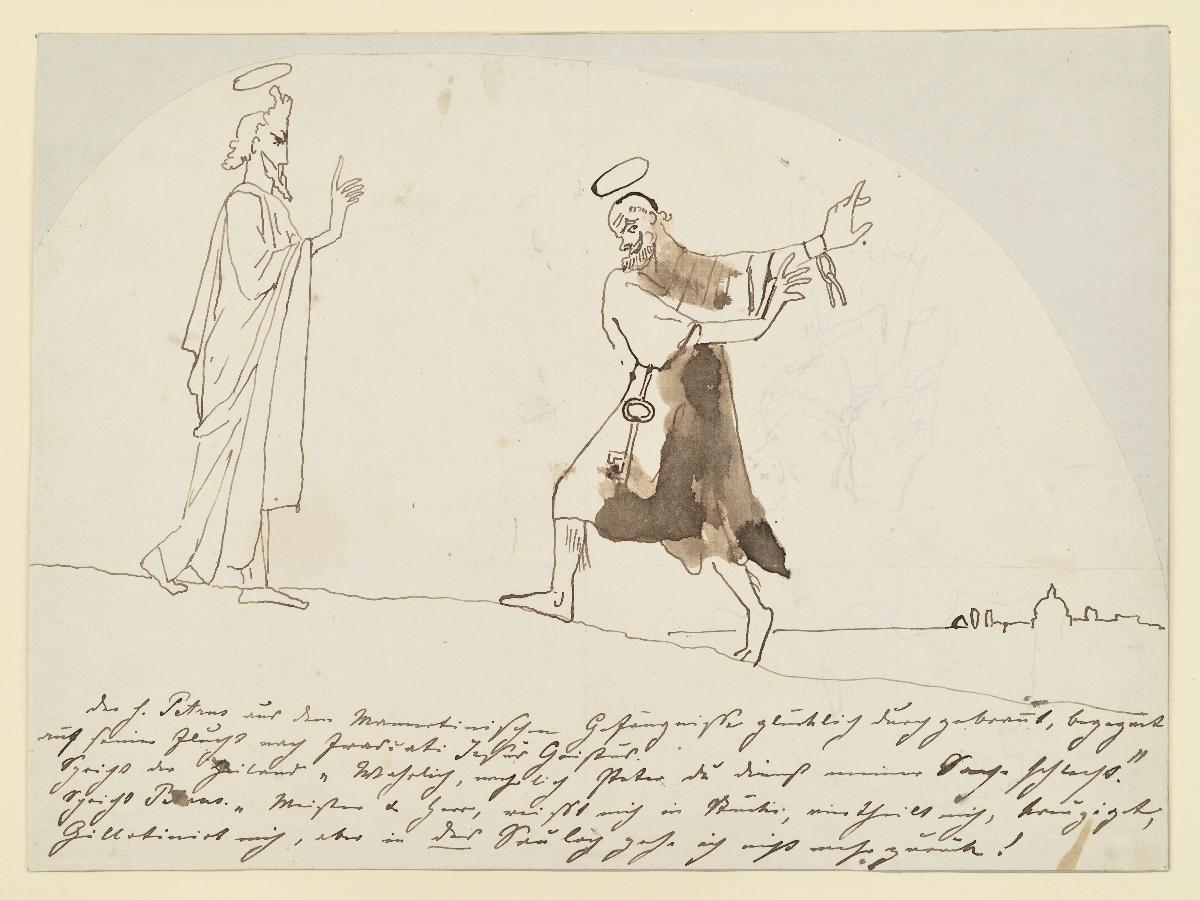 der h. Petrus aus dem Mamertinischen Gefängnisse glücklich durchgebrannt, begegnet
auf seiner Flucht nach Frascati Jesus Christus.
Spricht der Heiland „ Wahrlich, wahrlich Peter du dienst meiner Sache schlecht."
Spricht Petrus. „ Meister & Herr, reißt mich in Stücke, viertheilt mich, kreuzigt,
Gillotinirt mich, aber in das Sauloch gehe ich nicht mehr zurück!